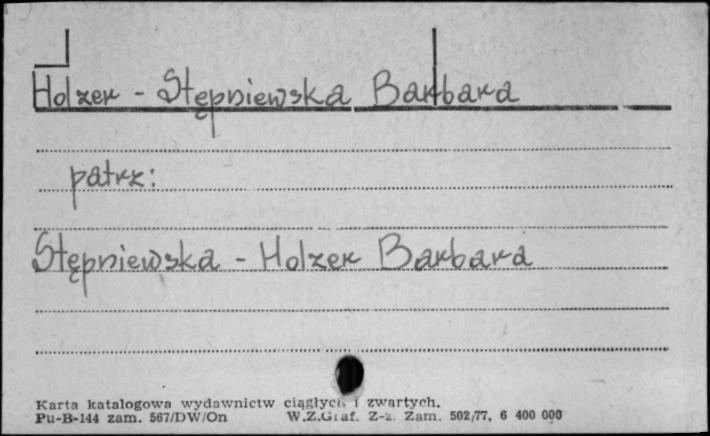 Holzer - Stępniewska Barbara
patrz:
Stępniewska - Holzer Barbara
Karta katalogowa wydawnictw ciągłych i zwartych.
Pu-B-144 zam. 567/DW/On W.Z.Graf. Z-z. Zam. 502/77, 6 400 000